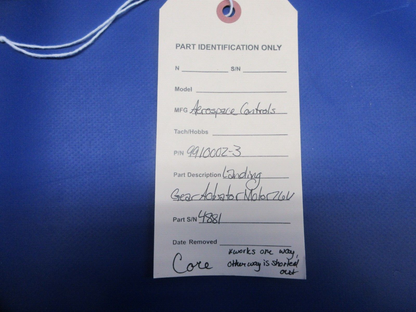 PART IDENTIFICATION ONLY
N S/N
Model
MFG Aerospace Controls
Tach/Hobbs
P/N 9910002-3
Part Description Landing
Gear Actuator Motor 26V
Part S/N 4881
Date Removed
Core *works one way,
other way is shorted
out